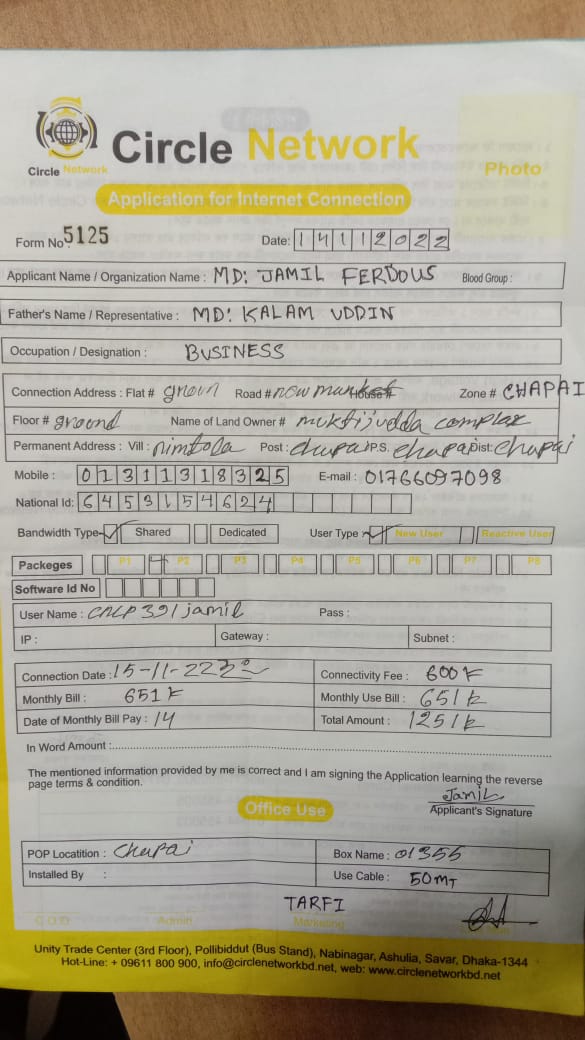 Circle Network
Circle Network
Photo
Application for Internet Connection
Form No: 5125 Date: 14112022
Applicant Name / Organization Name : MD: JAMIL FERDOUS Blood Group :
Father's Name / Representative : MD: KALAM UDDIN
Occupation / Designation : BUSINESS
Connection Address : Flat # Road # new market House # Zone # CHAPAI
Floor # ground Name of Land Owner # muktijudda complex
Permanent Address : Vill : nimtola Post : chupai P.S. chapai Dist: chupai
Mobile : 01311318325 E-mail : 01766097098
National Id: 6453154624
Bandwidth Type- Shared Dedicated User Type : New User Reactive User
Packeges P1 P2 P3 P4 P5 P6 P7 P8
Software Id No
User Name : jamil Pass :
IP : Gateway : Subnet :
Connection Date : 15-11-22 Connectivity Fee : 600
Monthly Bill : 651 Monthly Use Bill : 651
Date of Monthly Bill Pay : 14 Total Amount : 1251
In Word Amount :
The mentioned information provided by me is correct and I am signing the Application learning the reverse
page terms & condition.
Jamil
Applicant's Signature
Office Use
POP Locatition : Chupai Box Name : 01355
Installed By : Use Cable : 50MT
TARFI
C.O.O Admin Marketing
Unity Trade Center (3rd Floor), Pollibiddut (Bus Stand), Nabinagar, Ashulia, Savar, Dhaka-1344
Hot-Line: + 09611 800 900, info@circlenetworkbd.net, web: www.circlenetworkbd.net